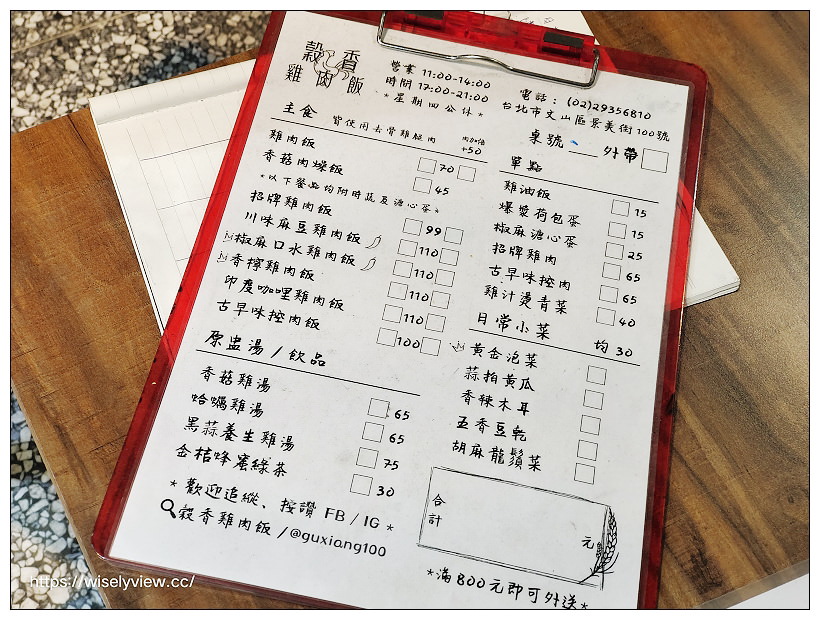 穀香
雞肉飯
營業 11:00-14:00
時間 17:00-21:00
*星期四公休*
電話：(02)29356810
台北市文山區景美街100號
桌號 ___ 外帶
主食 皆使用去骨雞腿肉 肉加倍 +50
雞肉飯 70
香菇肉燥飯 45
*以下餐點均附時蔬及溏心蛋*
招牌雞肉飯 99
川味麻豆雞肉飯 110
椒麻口水雞肉飯 110
香檸雞肉飯 110
印度咖哩雞肉飯 110
古早味控肉飯 100
原盅湯/飲品
香菇雞湯 65
蛤蠣雞湯 65
黑蒜養生雞湯 75
金桔蜂蜜綠茶 30
*歡迎追縱、按讚 FB/IG*
穀香雞肉飯/@guxiang100
單點
雞油飯 15
爆漿荷包蛋 15
椒麻溏心蛋 25
招牌雞肉 65
古早味控肉 65
雞汁燙青菜 40
日常小菜 均30
黃金泡菜
蒜拍黃瓜
香辣木耳
五香豆乾
胡麻龍鬚菜
合計 元
*滿800元即可外送*
https://wiselyview.cc/